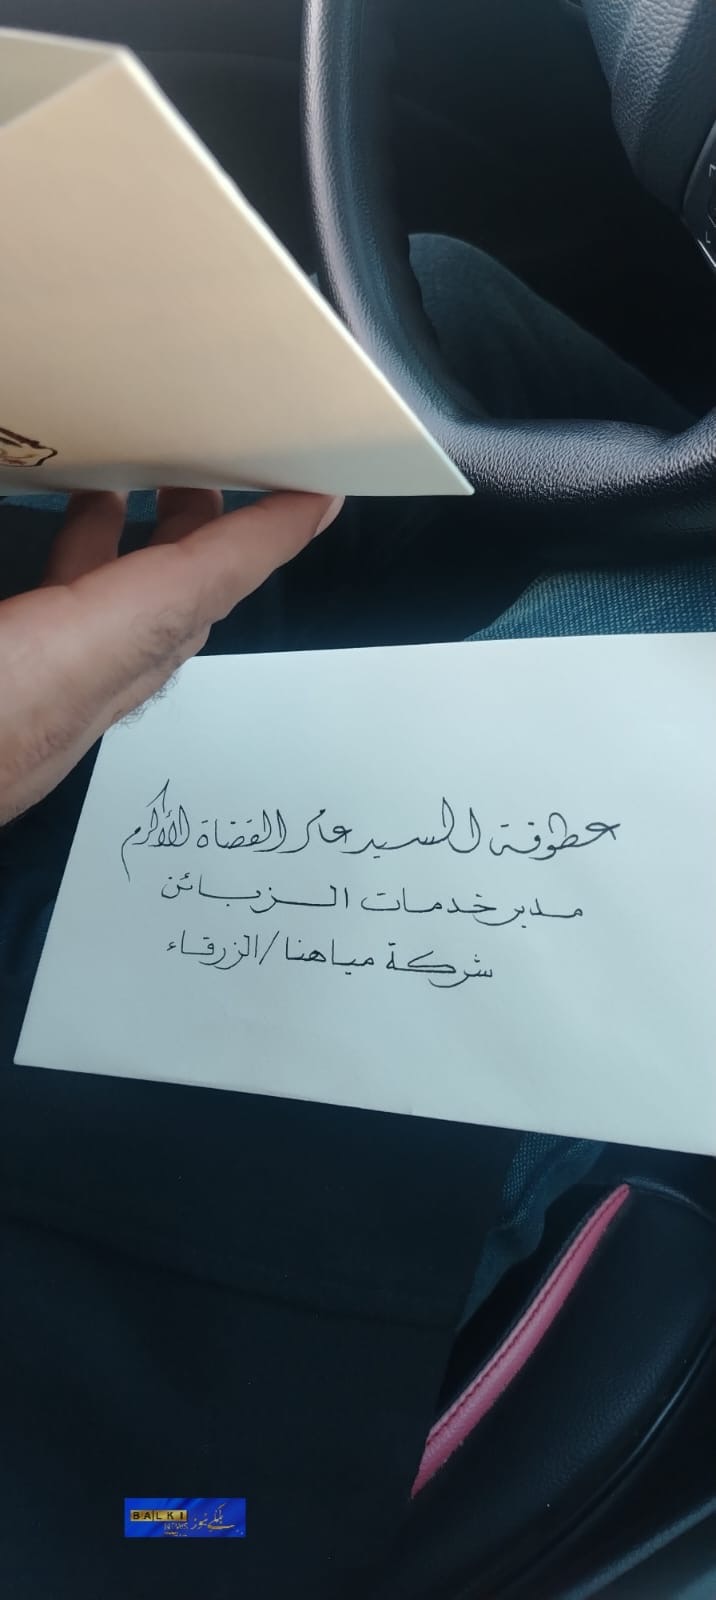 عطوفة السيد عامر القضاة الأكرم
مدير خدمات الزبائن
شركة مياهنا/الزرقاء
BALKI
NEWS بلكي نيوز